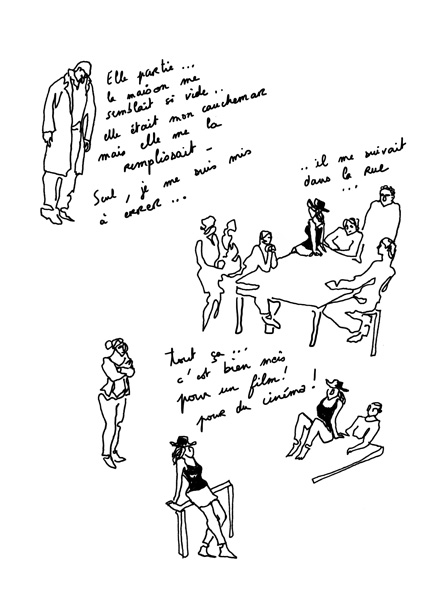 Elle partie ...
la maison me
semblait si vide ..
elle était mon cauchemar
mais elle me la
remplissait -
Seul, je me suis mis
à errer ...
.. il me suivait
dans la rue
...
tout ça ...
c'est bien mais
pour un film !
pour du cinéma !